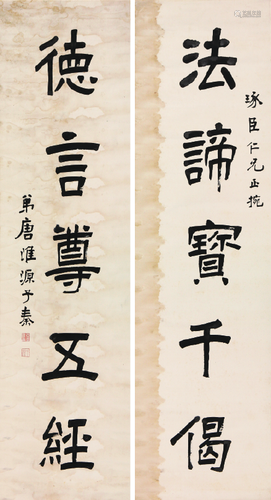 法諦寶千偈
琢臣仁兄正捥
德言尊五經
弟唐淮源于秦